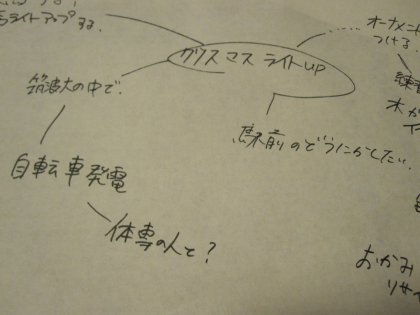 ライトアップする。
オーナメント
つける
クリスマスライトup
筑波大の中で
駅前のどうにかしたい。
自転車発電
体専の人と?
木が
おかみ
リサイ